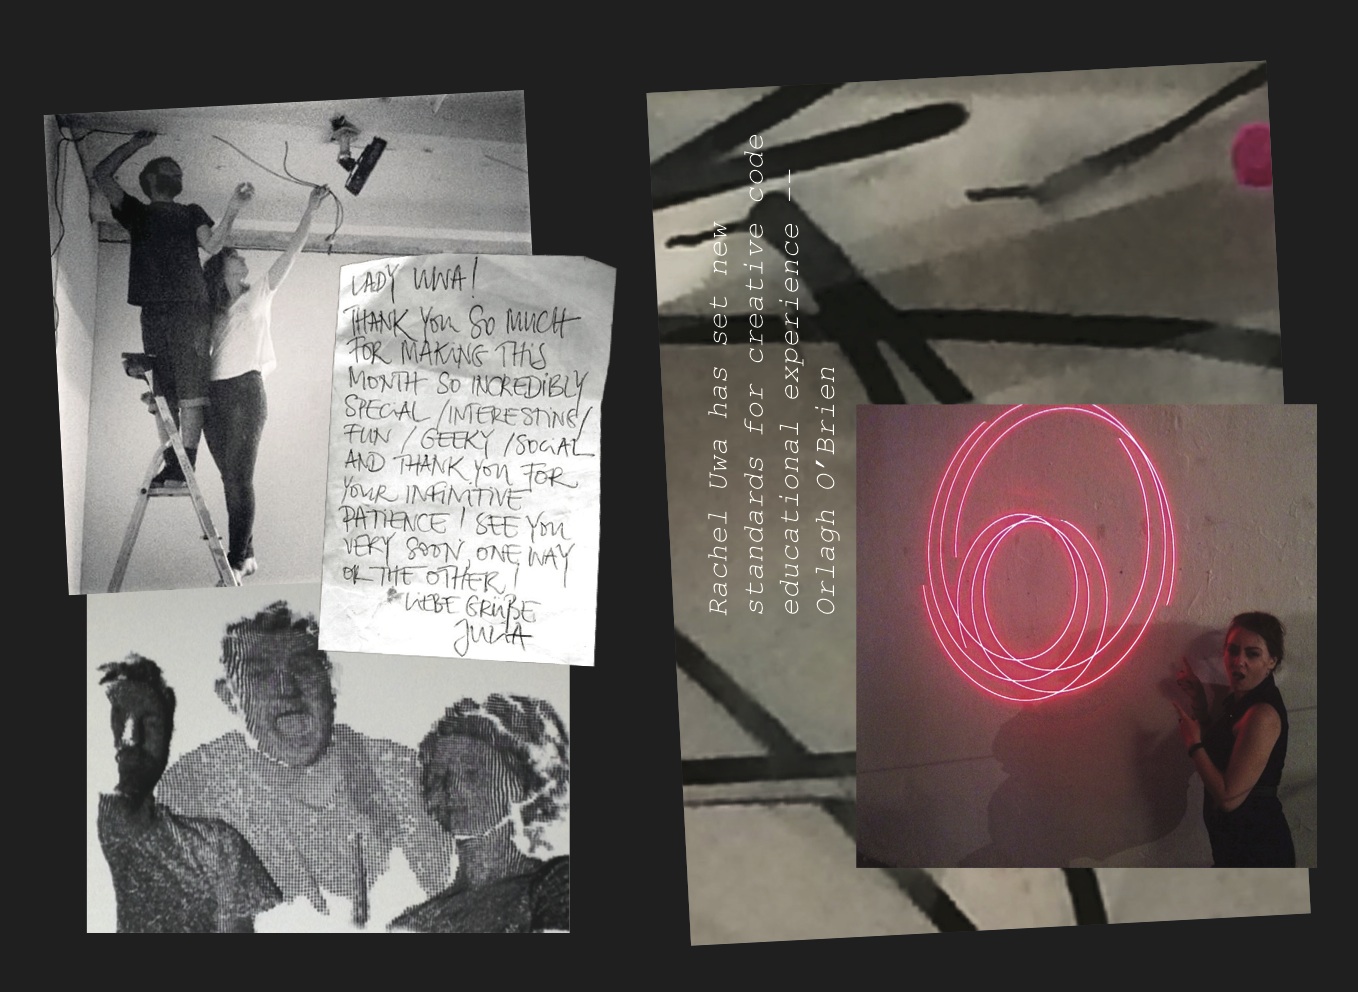 LADY UWA!
THANK YOU SO MUCH
FOR MAKING THIS
MONTH SO INCREDIBLY
SPECIAL /INTERESTING/
FUN / GEEKY /SOCIAL
AND THANK YOU FOR
YOUR INFINITIVE
PATIENCE! SEE YOU
VERY SOON, ONE WAY
OR THE OTHER!
LIEBE GRÜßE
JULIA
Rachel Uwa has set new
standards for creative code
educational experience --
Orlagh O'Brien